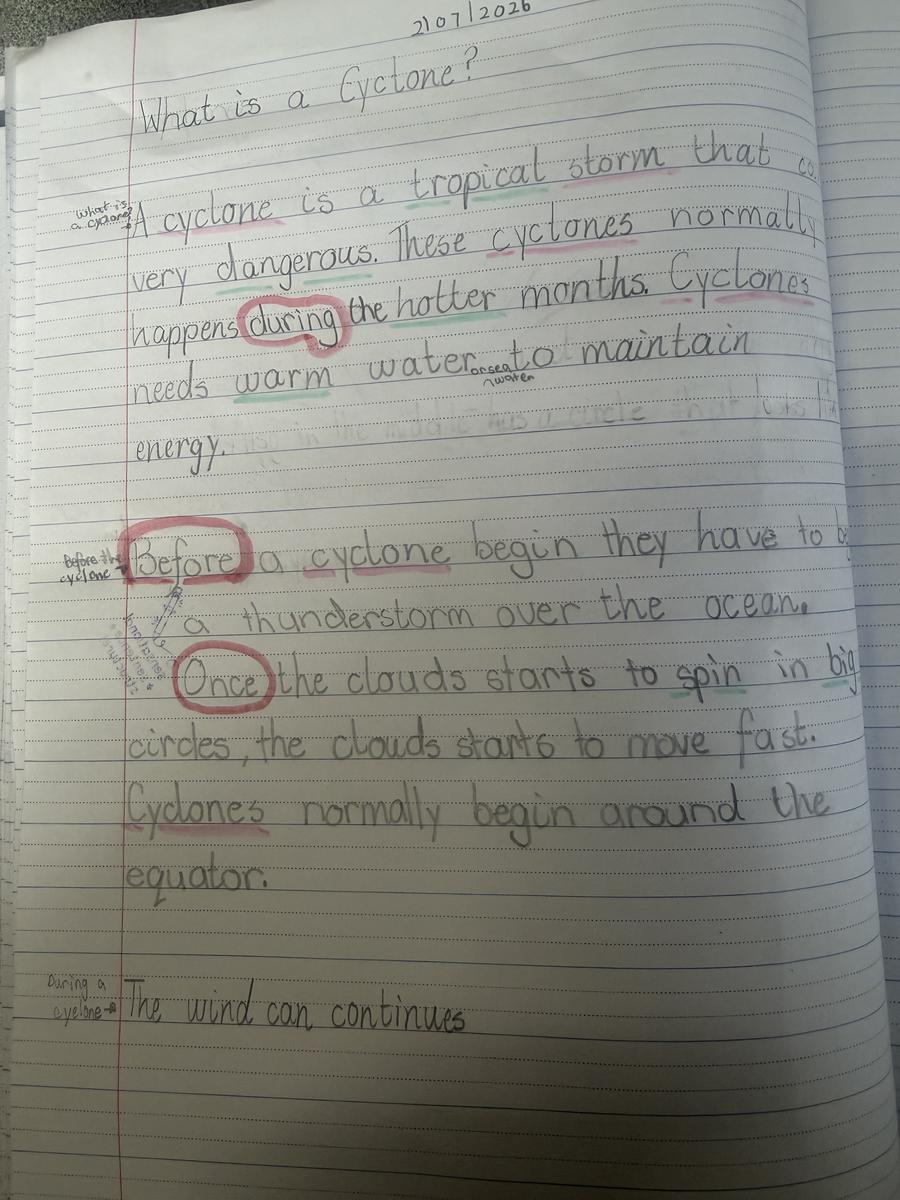 21/07/2026
What is a Cyclone?
What is
a cyclone?
A cyclone is a tropical storm that
very dangerous. These cyclones normally
happens during the hotter months. Cyclones
needs warm water or sea water to maintain
energy.
Before the
cyclone
Before a cyclone begin they have to
a thunderstorm over the ocean.
Once the clouds starts to spin in big
circles, the clouds starts to move fast.
Cyclones normally begin around the
equator.
During a
cyclone
The wind can continues